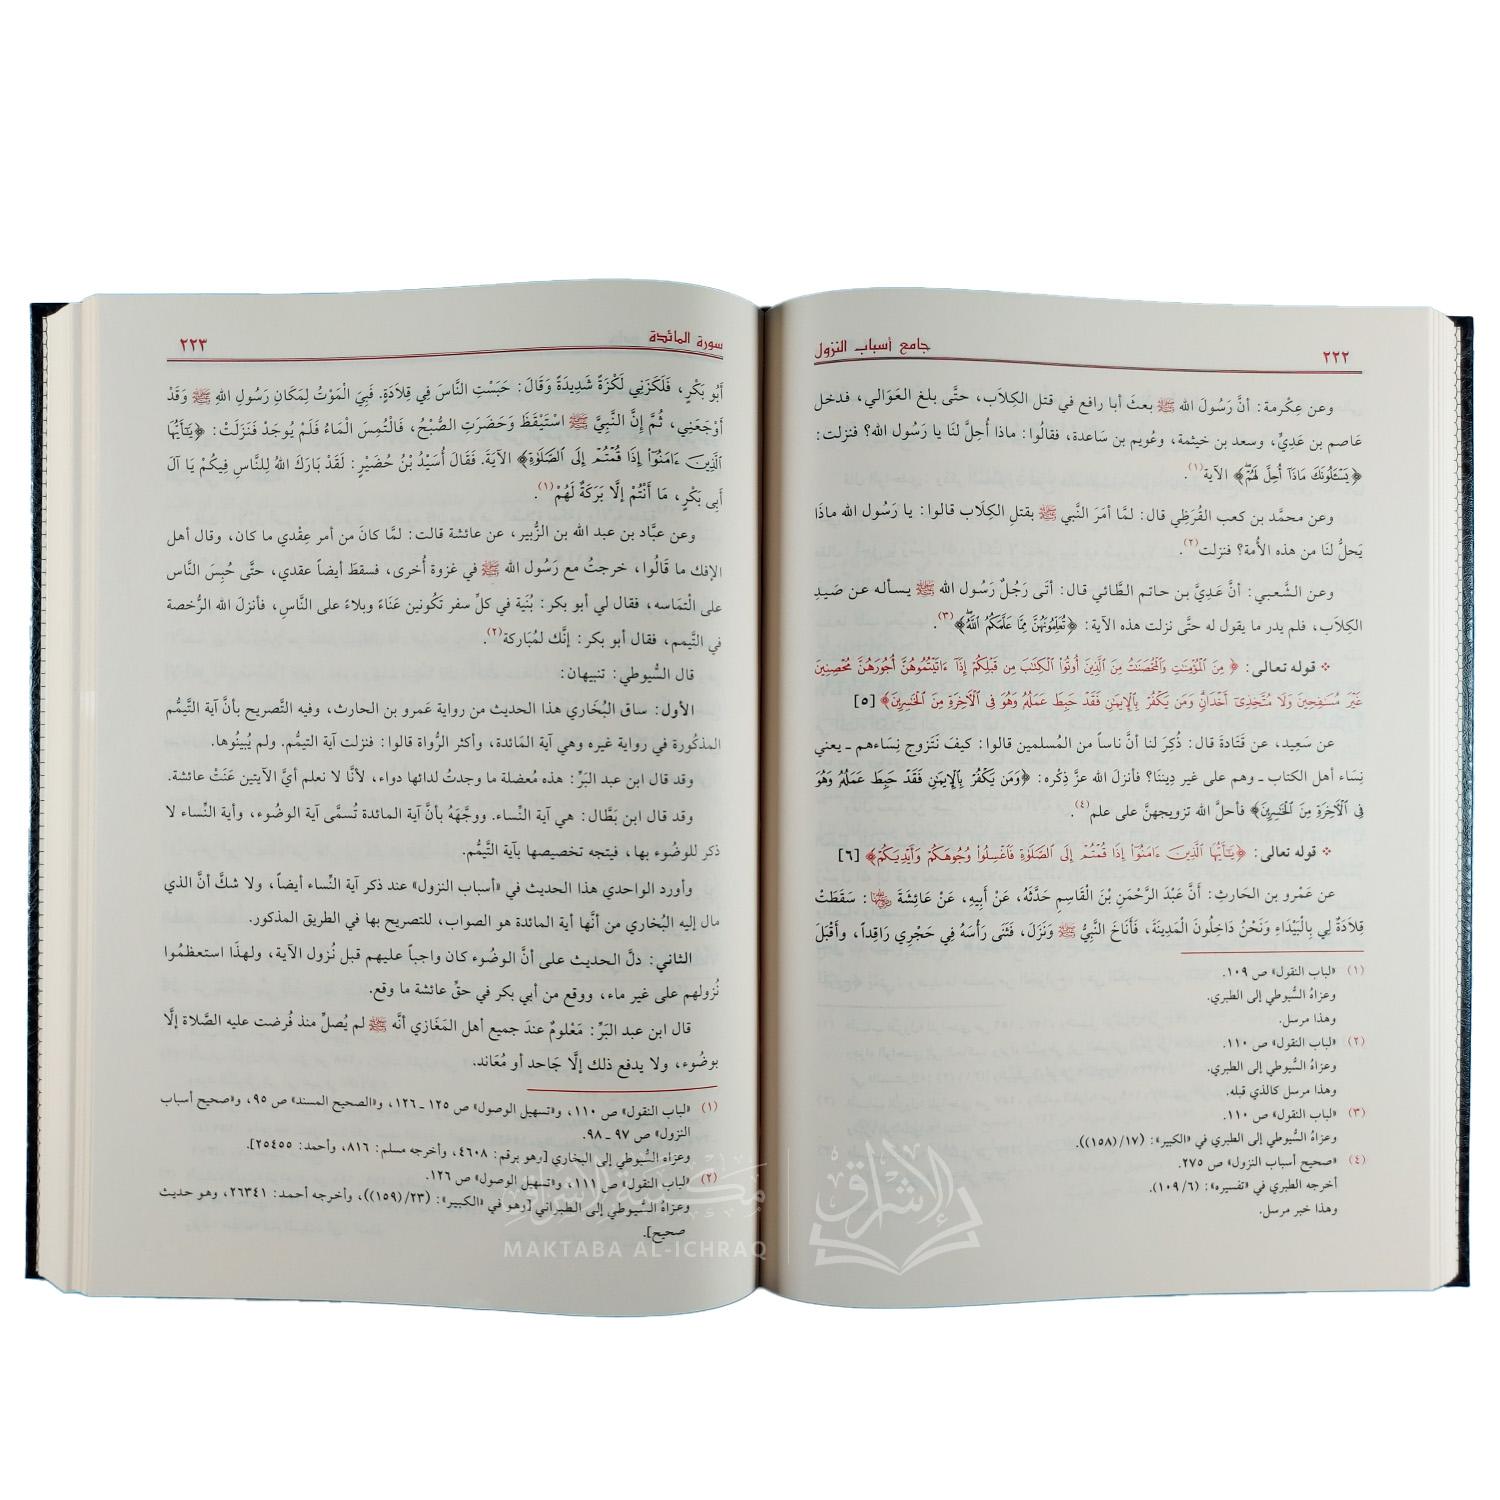 ٢٢٢
جامع أسباب النزول
وعن عِكْرمة: أنَّ رَسُولَ الله ﷺ بعثَ أبا رافع في قتل الكِلاب، حتَّى بلغ العَوَالي، فدخل
عَاصم بن عَدِيٍّ، وسعد بن خيثمة، وعُويم بن سَاعدة، فقالُوا: ماذا أُحِلَّ لنَا يا رَسُول الله؟ فنزلت:
﴿يَسْـَٔلُونَكَ مَاذَآ أُحِلَّ لَهُمْ﴾ الآية(١).
وعن محمَّد بن كعب القُرَظِي قال: لمَّا أمَرَ النَّبي ﷺ بقتلِ الكِلَاب قالوا: يا رَسُول الله ماذَا
يَحلُّ لنَا من هذه الأُمة؟ فنزلت(٢).
وعن الشَّعبي: أنَّ عَدِيَّ بن حاتم الطَّائي قال: أتَى رَجُلٌ رَسُول الله ﷺ يسأله عن صَيدِ
الكِلَاب، فلم يدر ما يقول له حتَّى نزلت هذه الآية: ﴿تُعَلِّمُونَهُنَّ مِمَّا عَلَّمَكُمُ ٱللَّهُ﴾(٣).
* قوله تعالى: ﴿مِنَ ٱلْمُؤْمِنَٰتِ وَٱلْمُحْصَنَٰتُ مِنَ ٱلَّذِينَ أُوتُوا۟ ٱلْكِتَٰبَ مِن قَبْلِكُمْ إِذَآ ءَاتَيْتُمُوهُنَّ أُجُورَهُنَّ مُحْصِنِينَ
غَيْرَ مُسَٰفِحِينَ وَلَا مُتَّخِذِىٓ أَخْدَانٍ وَمَن يَكْفُرْ بِٱلْإِيمَٰنِ فَقَدْ حَبِطَ عَمَلُهُۥ وَهُوَ فِى ٱلْـَٔاخِرَةِ مِنَ ٱلْخَٰسِرِينَ﴾ [٥]
عن سَعِيد، عن قَتَادَة قال: ذُكِرَ لنا أنَّ ناساً من المُسلمين قالوا: كيفَ نَتَزوج نِسَاءهم ـ يعني
نِسَاء أهل الكتاب ـ وهم على غير دِيننَا؟ فأنزل الله عزَّ ذِكره: ﴿وَمَن يَكْفُرْ بِٱلْإِيمَٰنِ فَقَدْ حَبِطَ عَمَلُهُۥ وَهُوَ
فِى ٱلْـَٔاخِرَةِ مِنَ ٱلْخَٰسِرِينَ﴾ فأحلَّ الله تزويجهنَّ على علم(٤).
* قوله تعالى: ﴿يَٰٓأَيُّهَا ٱلَّذِينَ ءَامَنُوٓا۟ إِذَا قُمْتُمْ إِلَى ٱلصَّلَوٰةِ فَٱغْسِلُوا۟ وُجُوهَكُمْ وَأَيْدِيَكُمْ﴾ [٦]
عن عَمْرو بن الحَارثِ: أَنَّ عَبْدَ الرَّحْمَنِ بْنَ الْقَاسِمِ حَدَّثَهُ، عَنْ أَبِيهِ، عَنْ عَائِشَةَ رضي الله عنها: سَقَطَتْ
قِلاَدَةٌ لِي بِالْبَيْدَاءِ وَنَحْنُ دَاخِلُونَ الْمَدِينَةَ، فَأَنَاخَ النَّبِيُّ ﷺ وَنَزَلَ، فَثَنَى رَأْسَهُ فِي حَجْرِي رَاقِداً، وأَقْبَلَ
(١) «لباب النقول» ص ١٠٩.
وعزاهُ السُّيوطي إلى الطبري.
وهذا مرسل.
(٢) «لباب النقول» ص ١١٠.
وعزاهُ السُّيوطي إلى الطبري.
وهذا مرسل كالذي قبله.
(٣) «لباب النقول» ص ١١٠.
وعزاهُ السُّيوطي إلى الطبري في «الكبير»: (١٧/(١٥٨)).
(٤) «صحيح أسباب النزول» ص ٢٧٥.
أخرجه الطبري في «تفسيره»: (٦/١٠٩).
وهذا خبر مرسل.
سورة المائدة
٢٢٣
أَبُو بَكْرٍ، فَلَكَزَنِي لَكْزَةً شَدِيدَةً وَقَالَ: حَبَسْتِ النَّاسَ فِي قِلاَدَةٍ. فَبِيَ الْمَوْتُ لِمَكَانِ رَسُولِ اللهِ ﷺ وَقَدْ
أَوْجَعَنِي، ثُمَّ إِنَّ النَّبِيَّ ﷺ اسْتَيْقَظَ وَحَضَرَتِ الصُّبْحُ، فَالْتُمِسَ الْمَاءُ فَلَمْ يُوجَدْ فَنَزَلَتْ: ﴿يَٰٓأَيُّهَا
ٱلَّذِينَ ءَامَنُوٓا۟ إِذَا قُمْتُمْ إِلَى ٱلصَّلَوٰةِ﴾ الآيَةَ. فَقَالَ أُسَيْدُ بْنُ حُضَيْرٍ: لَقَدْ بَارَكَ اللهُ لِلنَّاسِ فِيكُمْ يَا آلَ
أَبِى بَكْرٍ، مَا أَنْتُمْ إِلَّا بَرَكَةٌ لَهُمْ(١).
وعن عبَّاد بن عبد الله بن الزُّبير، عن عائشة قالت: لمَّا كانَ من أمر عِقْدي ما كان، وقال أهل
الإفك ما قَالُوا، خرجتُ مع رَسُول الله ﷺ في غزوة أُخرى، فسقطَ أيضاً عقدي، حتَّى حُبِسَ النَّاس
على الْتمَاسه، فقال لي أبو بكر: بُنَية في كلِّ سفر تَكُونين عَنَاءً وبلاءً على النَّاسِ، فأنزلَ الله الرُّخصة
في التَّيمم، فقال أبو بكر: إنَّك لمُبَاركة(٢).
قال السُّيوطي: تنبيهان:
الأول: ساق البُخَاري هذا الحديث من رواية عَمرو بن الحارث، وفيه التَّصريح بأنَّ آية التَّيمُّم
المذكُورة في رواية غيره وهي آية المَائدة، وأكثر الرُّواة قالوا: فنزلت آية التيمُّم. ولم يُبينُوها.
وقد قال ابن عبد البَرِّ: هذه مُعضلة ما وجدتُ لدائها دواء، لأنَّا لا نعلم أيَّ الآيتين عَنَتْ عائشة.
وقد قال ابن بَطَّال: هي آية النِّساء. ووجَّهَهُ بأنَّ آية المائدة تُسمَّى آية الوضُوء، وأية النِّساء لا
ذكر للوضُوء بها، فيتجه تخصيصها بآية التَّيمُّم.
وأورد الواحدي هذا الحديث في «أسباب النزول» عند ذكر آية النِّساء أيضاً، ولا شكَّ أنَّ الذي
مال إليه البُخاري من أنَّها أية المائدة هو الصواب، للتصريح بها في الطريق المذكور.
الثاني: دلَّ الحديث على أنَّ الوضُوء كان واجباً عليهم قبل نُزول الآية، ولهذَا استعظمُوا
نُزولهم على غير ماء، ووقع من أبي بكر في حقِّ عائشة ما وقع.
قال ابن عبد البَرِّ: مَعْلومٌ عندَ جميع أهل المَغَازي أنَّه ﷺ لم يُصلِّ منذ فُرضت عليه الصَّلاة إلَّا
بوضُوء، ولا يدفع ذلك إلَّا جَاحد أو مُعَاند.
(١) «لباب النقول» ص ١١٠، و«تسهيل الوصول» ص ١٢٥ ـ ١٢٦، و«الصحيح المسند» ص ٩٥، و«صحيح أسباب
النزول» ص ٩٧ ـ ٩٨.
وعزاه السُّيوطي إلى البخاري [وهو برقم: ٤٦٠٨، وأخرجه مسلم: ٨١٦، وأحمد: ٢٥٤٥٥].
(٢) «لباب النقول» ص ١١١، و«تسهيل الوصول» ص ١٢٦.
وعزاهُ السُّيوطي إلى الطبراني [وهو في «الكبير»: (٢٣/(١٥٩))، وأخرجه أحمد: ٢٦٣٤١، وهو حديث
صحيح].
مكتبة الإشراق
MAKTABA AL-ICHRAQ
الإشراق